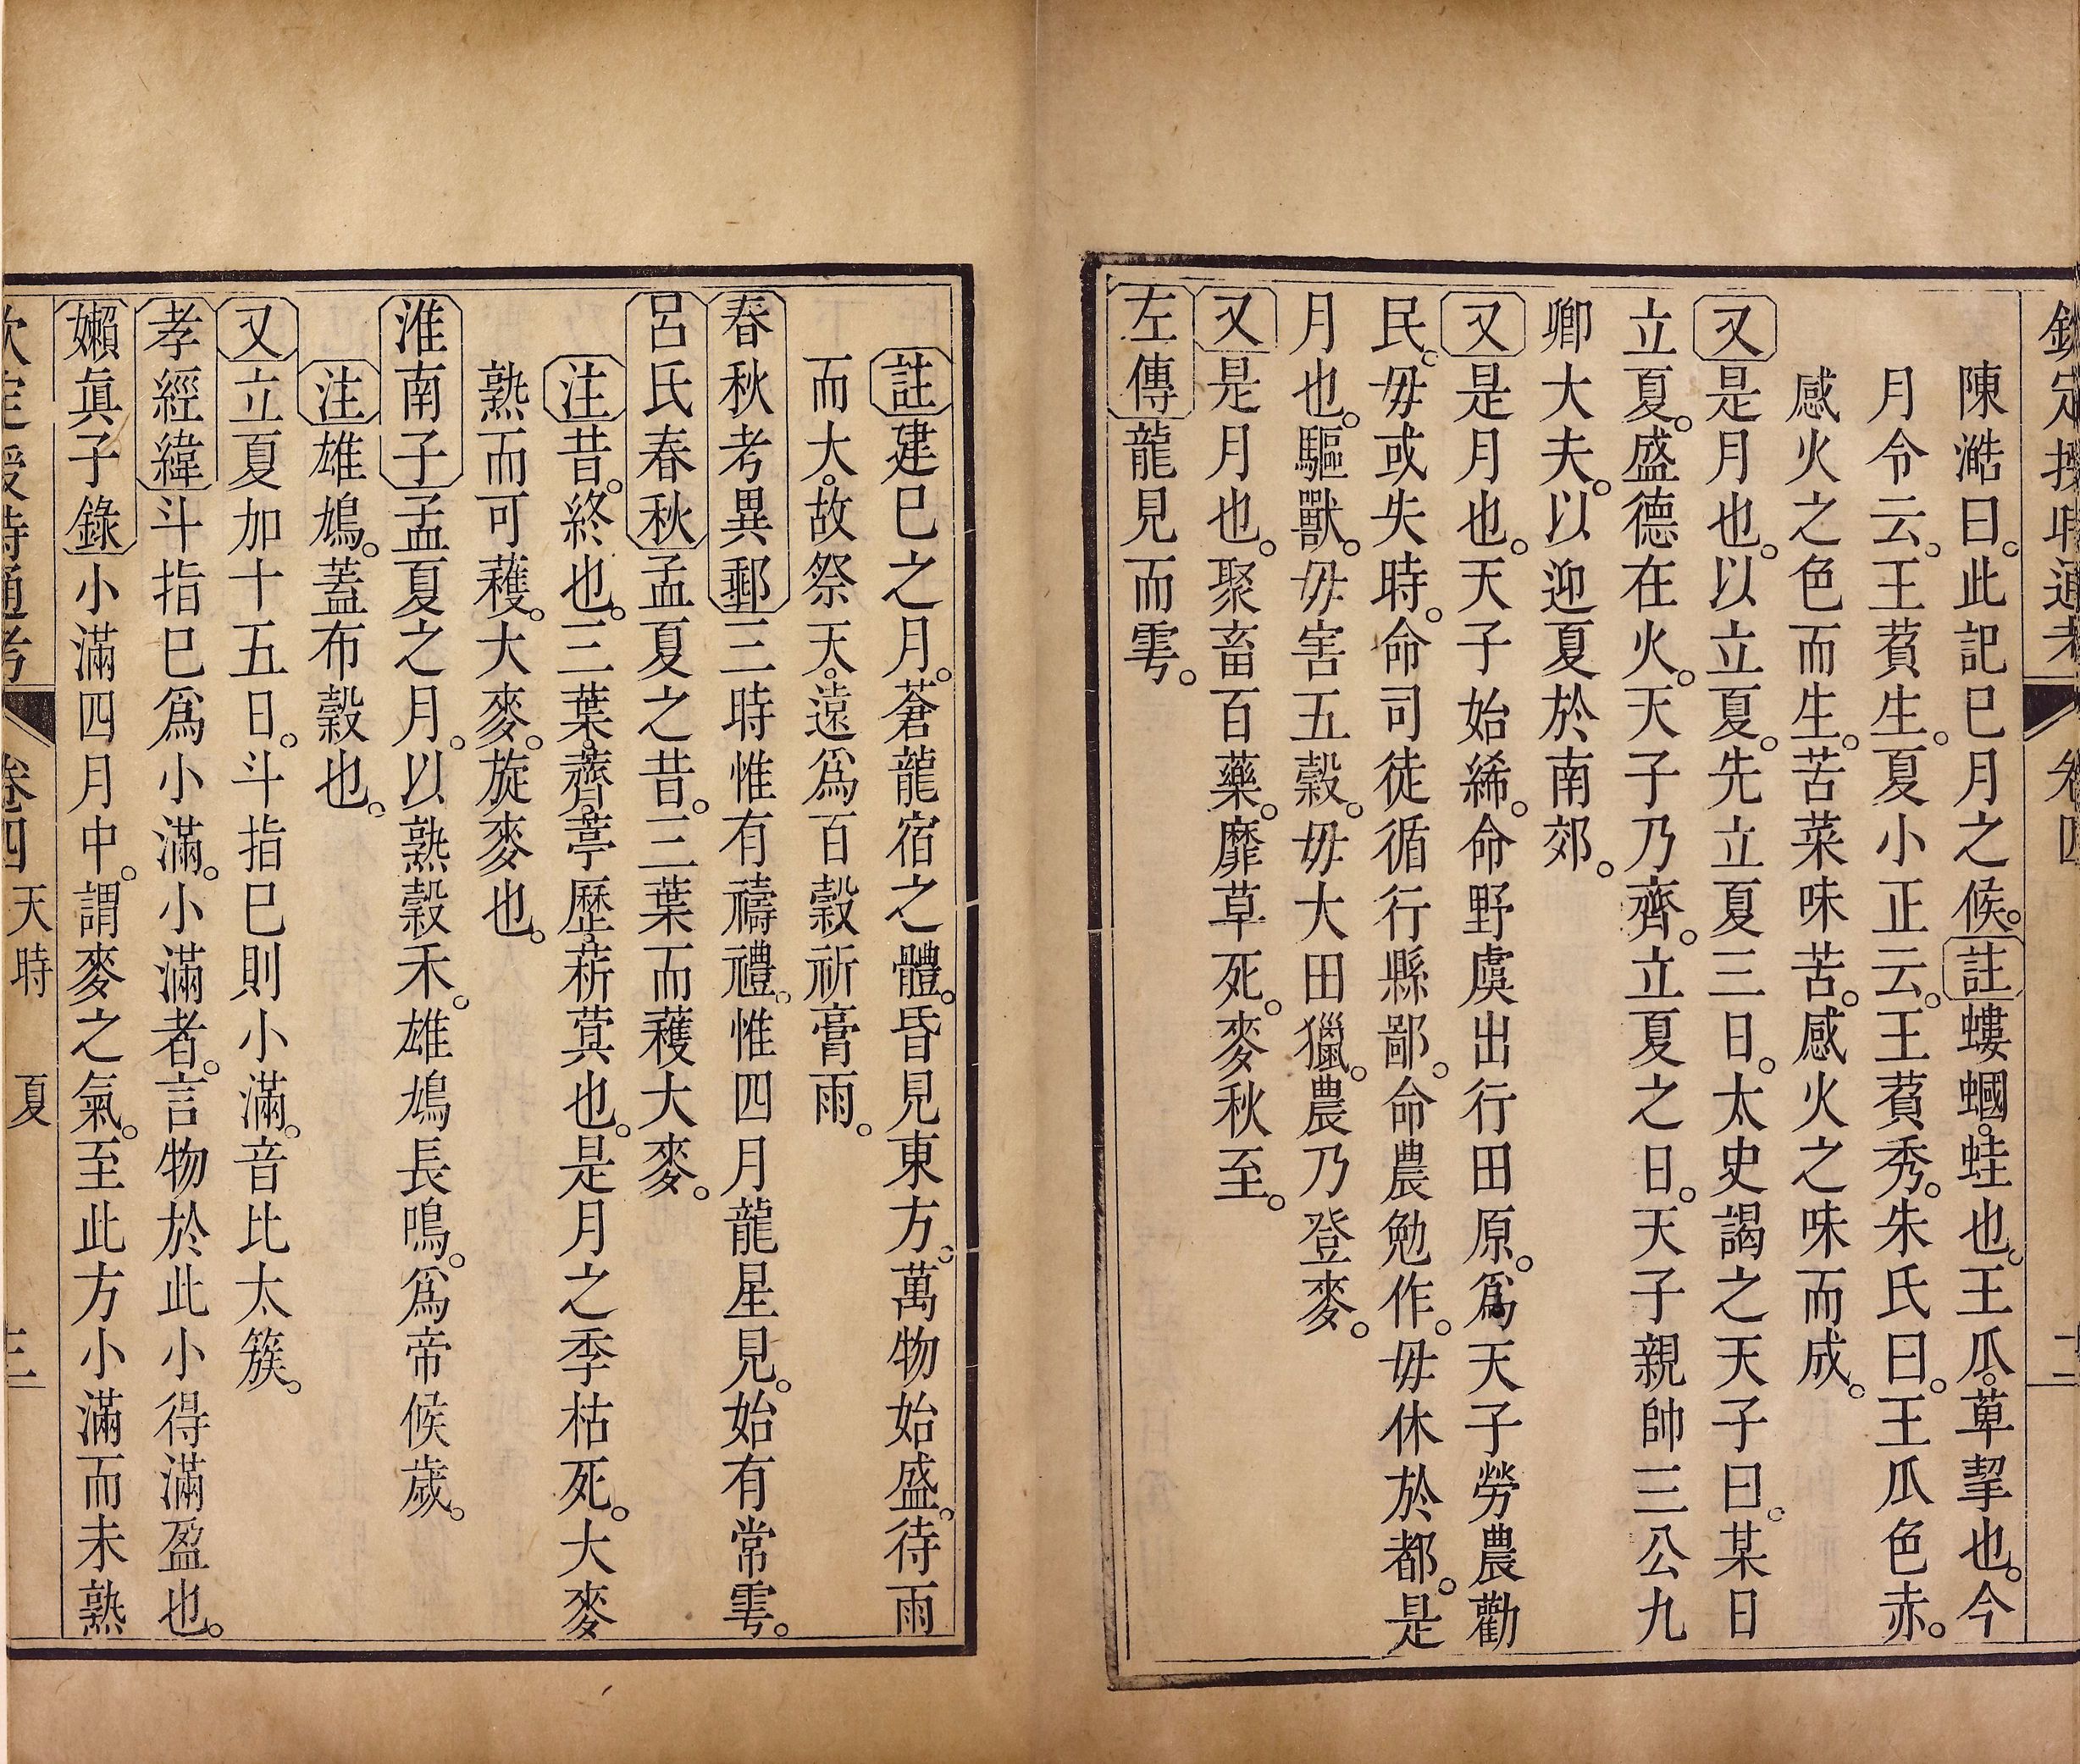 欽定授時通考 卷四
陳澔曰。此記巳月之候。註螻蟈。蛙也。王瓜。萆挈也。今
月令云。王萯生。夏小正云。王萯秀。朱氏曰。王瓜色赤。
感火之色而生。苦菜味苦。感火之味而成。
又是月也。以立夏。先立夏三日。太史謁之天子曰。某日
立夏。盛德在火。天子乃齊。立夏之日。天子親帥三公九
卿大夫。以迎夏於南郊。
又是月也。天子始絺。命野虞出行田原。爲天子勞農勸
民。毋或失時。命司徒循行縣鄙。命農勉作。毋休於都。是
月也。驅獸。毋害五穀。毋大田獵。農乃登麥。
又是月也。聚畜百藥。靡草死。麥秋至。
左傳龍見而雩。
註建巳之月。蒼龍宿之體。昏見東方。萬物始盛。待雨
而大。故祭天。遠爲百穀祈膏雨。
春秋考異郵三時惟有禱禮。惟四月龍星見。始有常雩。
呂氏春秋孟夏之昔。三葉而穫大麥。
注昔。終也。三葉。薺。葶歷。菥蓂也。是月之季枯死。大麥
熟而可穫。大麥。旋麥也。
淮南子孟夏之月。以熟穀禾。雄鳩長鳴。爲帝候歲。
注雄鳩。蓋布穀也。
又立夏加十五日。斗指巳則小滿。音比太簇。
孝經緯斗指巳爲小滿。小滿者。言物於此小得滿盈也。
嬾眞子錄小滿四月中。謂麥之氣。至此方小滿而未熟
欽定授時通考 卷四 天時 夏 三